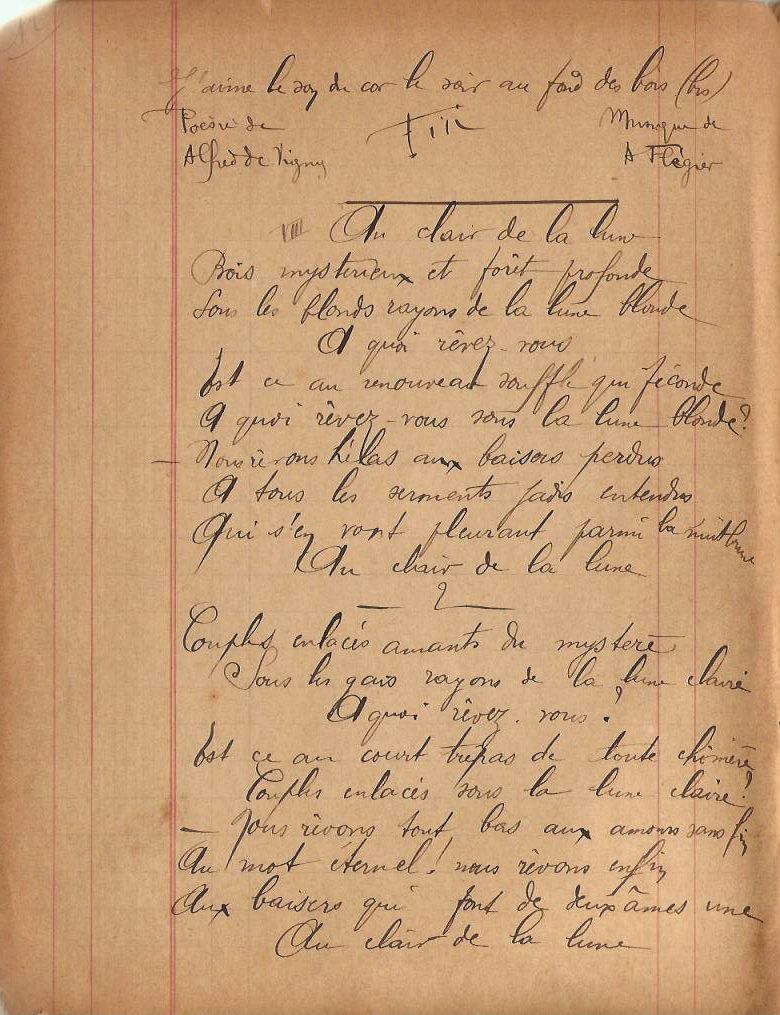 J'aime le son du cor le soir au fond des bois (bis)
Poésie de Fin Musique de
Alfred de Vigny A Flégier
VIII Au clair de la lune
Bois mysterieux et forêt profonde
Sous les blonds rayons de la lune blonde
A quoi rêvez-vous
Est ce au renouveau souffle qui féconde
A quoi rêvez-vous sous la lune blonde?
— Nous rêvons hélas aux baisers perdus
A tous les serments jadis entendus
Qui s'en vont pleurant parmi la nuit brune
Au clair de la lune
2
Couples enlacés amants du mystere
Sous les gais rayons de la lune claire
A quoi rêvez-vous?
Est ce au court trépas de toute chimère?
Couples enlacés sous la lune claire?
— Nous rêvons tout bas aux amours sans fin
Au mot éternel! nous rêvons enfin
Aux baisers qui font de deux âmes une
Au clair de la lune